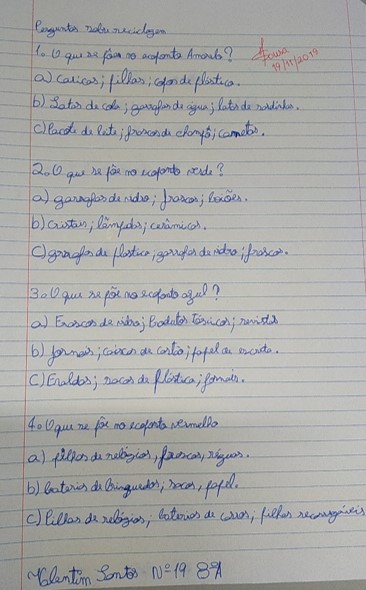 Perguntas sobre reciclagem
1. O que se põe no ecoponto Amarelo?
Sousa
19/11/2019
a) caricas; pilhas; copos de plástico.
b) Latas de cola; garrafas de água; latas de sardinha.
c) Pacote de leite; frascos de champô; canetas.
2. O que se põe no ecoponto verde?
a) garrafas de vidro; frascos; boiões.
b) cristais; lâmpadas; cerâmicas.
c) garrafas de plástico; garrafas de vidro; frascos.
3. O que se põe no ecoponto azul?
a) Frascos de vidro; Produtos Tóxicos; revistas
b) Jornais; caixas de cartão; papel de escrita.
c) Fraldas; sacos de plástico; jornais.
4. O que se põe no ecoponto vermelho
a) pilhas de relógios, frascos, réguas.
b) baterias de brinquedos, sacos, papel.
c) Pilhas de relógios; baterias de carros, pilhas recarregáveis
Valentim Santos Nº 19 8ºA